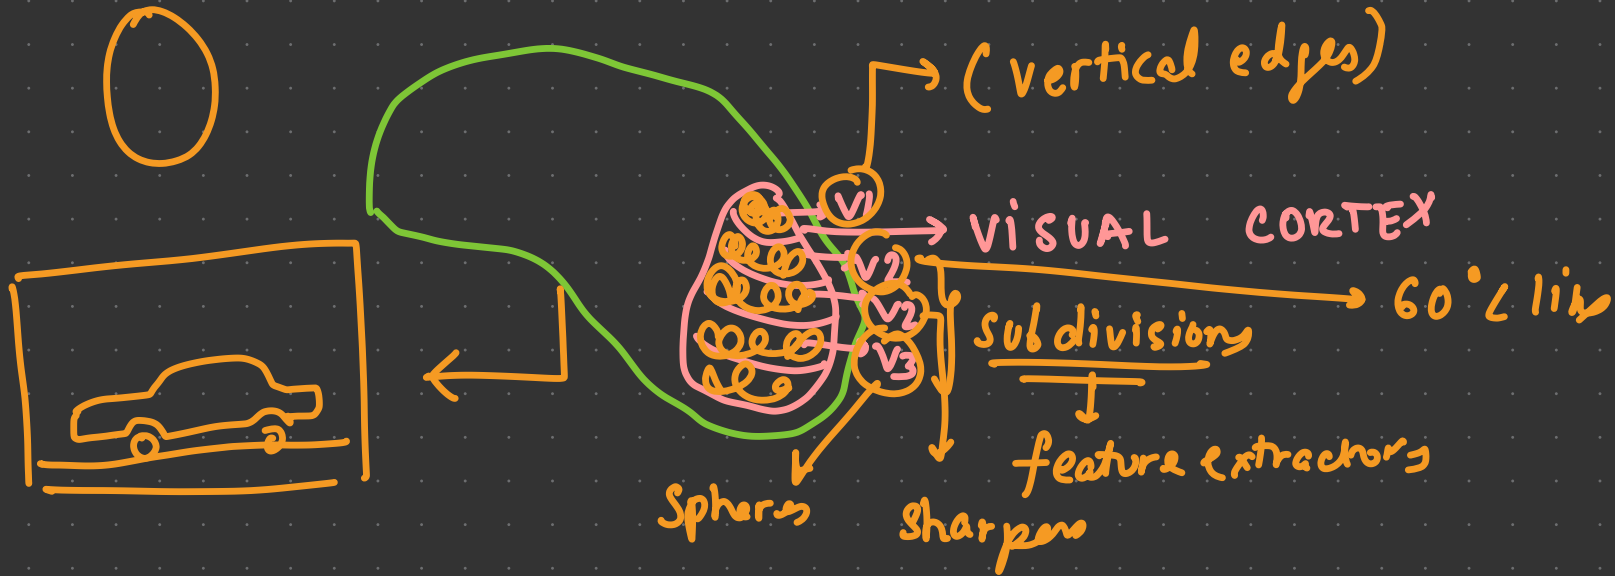 (vertical edges)
V1
VISUAL CORTEX
V2
60°∠ line
V2
subdivisions
V3
feature extractors
Spheres
Sharpen